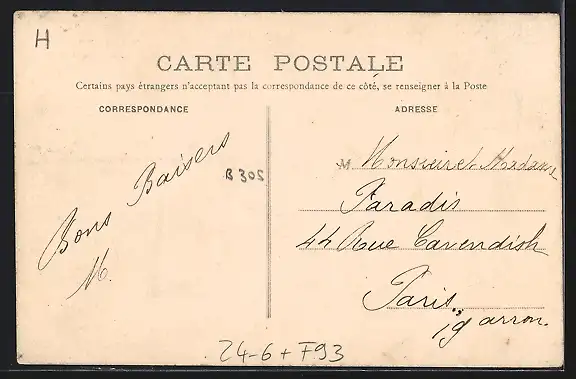 H
CARTE POSTALE
Certains pays étrangers n'acceptant pas la correspondance de ce côté, se renseigner à la Poste
CORRESPONDANCE
Bons Baisers
M.
B 305
ADRESSE
M Monsieur et Madame
Paradis
44 Rue Cavendish
Paris.
19 arron.
24-6+F93